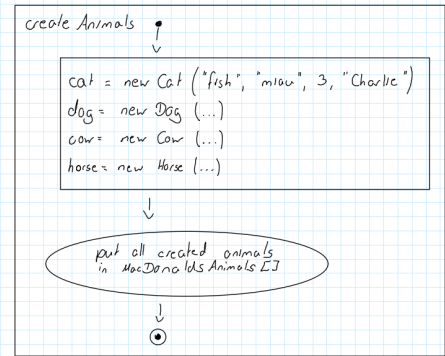 create Animals
cat = new Cat ("fish", "miau", 3, "Charlie")
dog = new Dog (...)
cow = new Cow (...)
horse = new Horse (...)
put all created animals
in MacDonaldsAnimals []